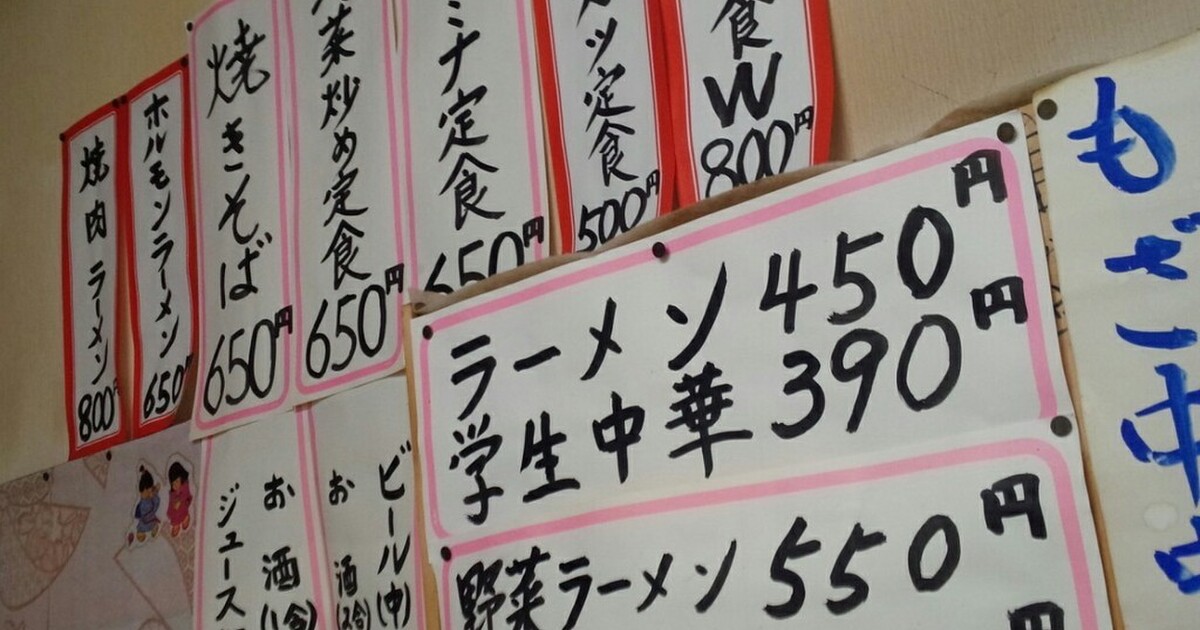 焼肉ラーメン 800円
ホルモンラーメン 650円
焼きそば 650円
菜炒め定食 650円
ミナ定食 650円
ツ定食 500円
食W 800円
ラーメン 450円
学生中華 390円
野菜ラーメン 550円
円
ビール(中)
お酒(2合)
お酒(1合)
ジュース